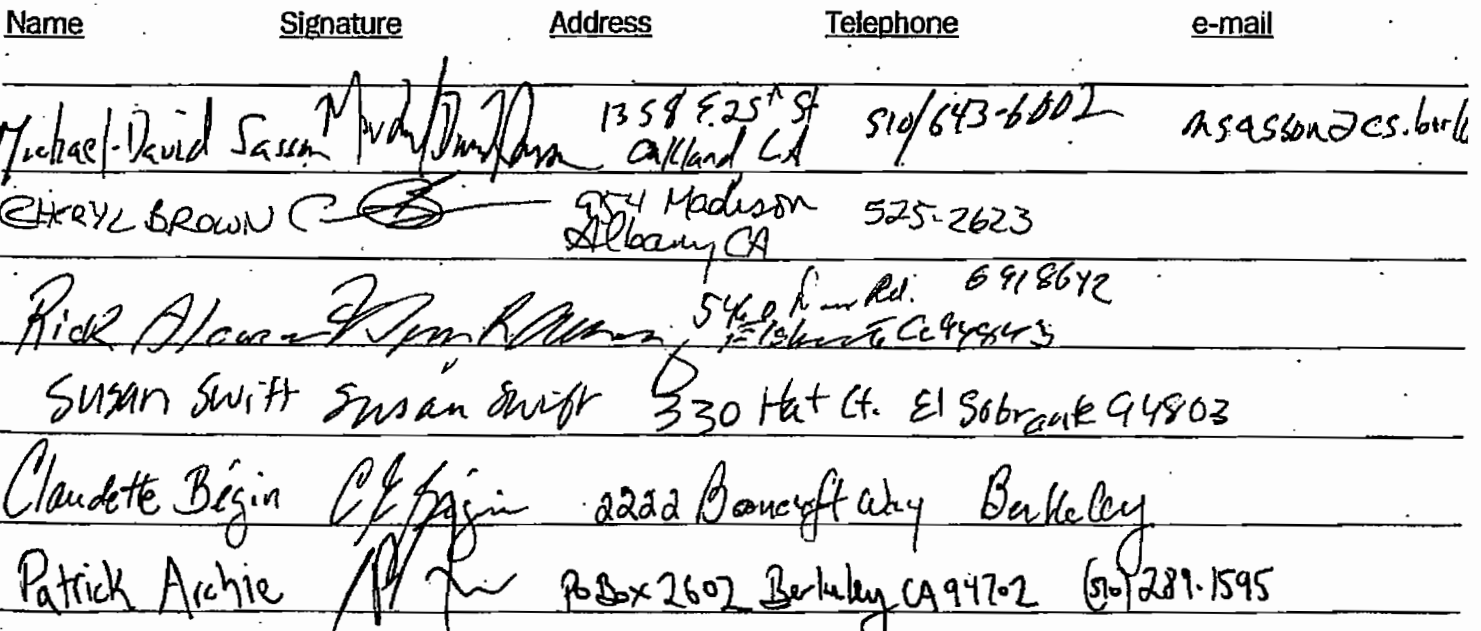 Name Signature Address Telephone e-mail
Michael-David Sasson 1358 E. 25th St 510/643-6002 msasson@cs.berk
Oakland CA
CHERYL BROWN 954 Madison 525-2623
Albany CA
Rick Rd. 6918642
Susan Swift Susan Swift 330 Hat Ct. El Sobrante 94803
Claudette Bégin C E Bégin 2222 Bancroft Way Berkeley
Patrick Archie PO Box 2602 Berkeley CA 94702 (510) 289-1595